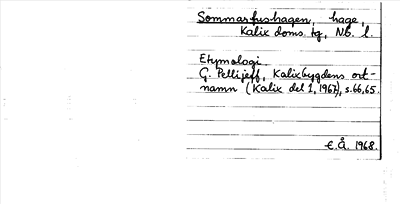 Sommarfushagen, hage,
Kalix doms. tg, Nb. l.
Etymologi
G. Pellijeff, Kalixbygdens ort-
namn (Kalix del 1, 1967), s. 66, 65.
E. Å. 1968.